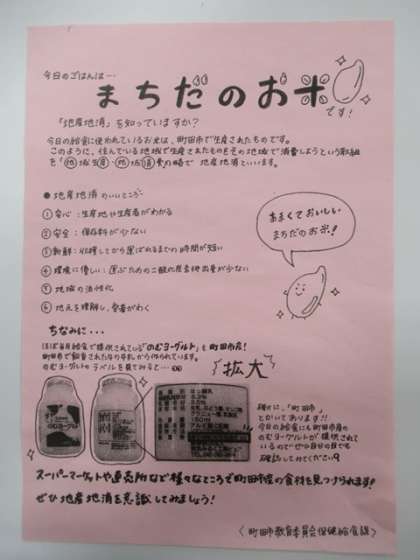 今日のごはんは…
まちだのお米
です!
「地産地消」を知っていますか?
今日の給食に使われているお米は、町田市で生産されたものです。
このように、住んでいる地域で生産されたものをその地域で消費しようという取組
を「地域生産・地域消費」の略で 地産地消といいます。
●地産地消のいいところ
①安心:生産地や生産者がわかる
②安全:保存料が少ない
③新鮮:収穫してから運ばれるまでの時間が短い
④環境に優しい:運ぶための二酸化炭素排出量が少ない
⑤地域の活性化
⑥地元を理解し、愛着がわく
あまくておいしい
まちだのお米!
ちなみに・・・
ほぼ毎月給食で提供されている「のむヨーグルト」も町田市産!
町田市で飼育された牛の牛乳から作られています。
のむヨーグルトのラベルを見てみると…
拡大
のむヨーグルト
確かに、「町田市」
とかいてあります!!
今日の給食にも町田市産の
のむヨーグルトが提供されて
いるのでぜひ自分の目でも
確認してみてください
スーパーマーケットや直売所など様々なところで町田市産の食材を見つけられます!
ぜひ地産地消を意識してみましょう!
<町田市教育委員会保健給食課>